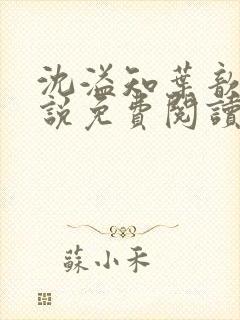 沈溢知葉歆
說免費閱讀
蘇小禾